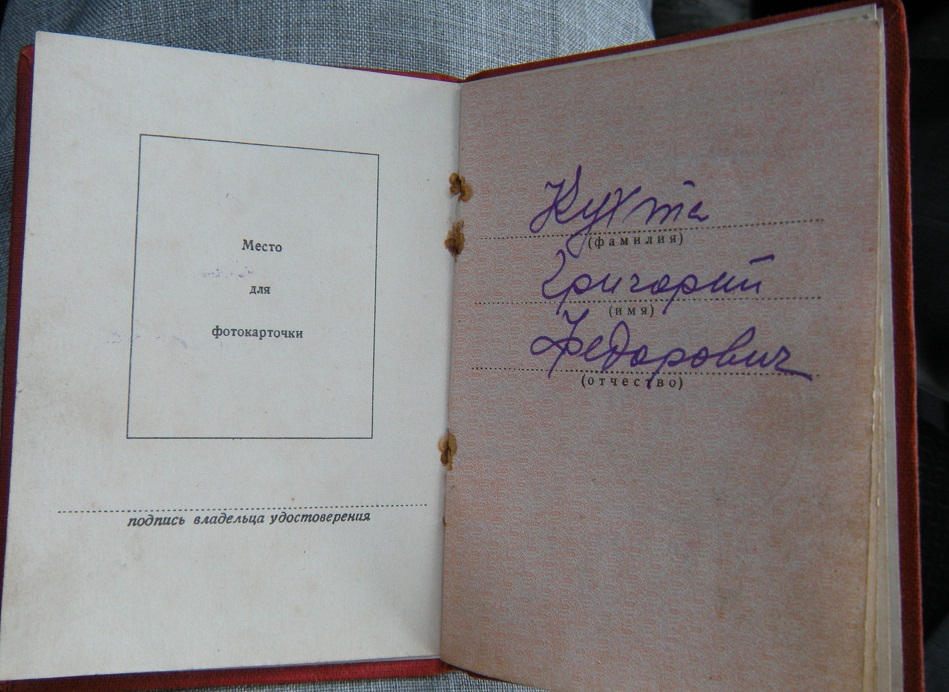 Место
для
фотокарточки
подпись владельца удостоверения
Кухта
(фамилия)
Григорий
(имя)
Федорович
(отчество)